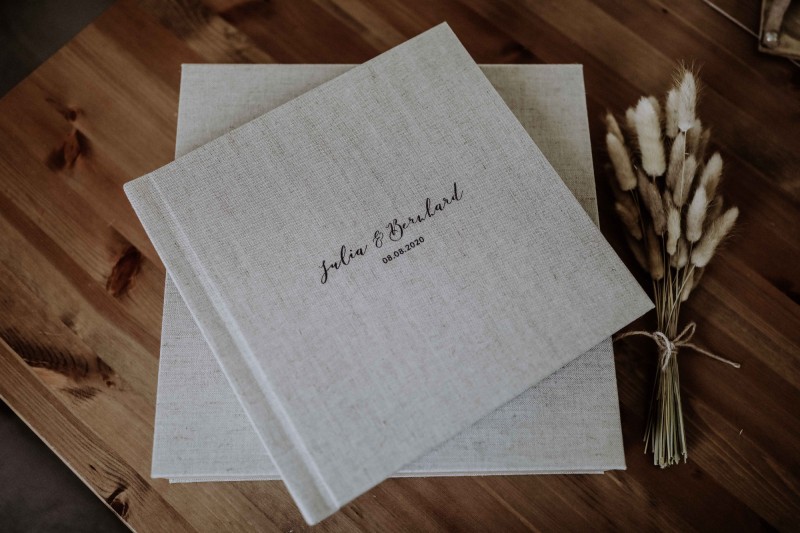 Julia & Bernhard
08.08.2020